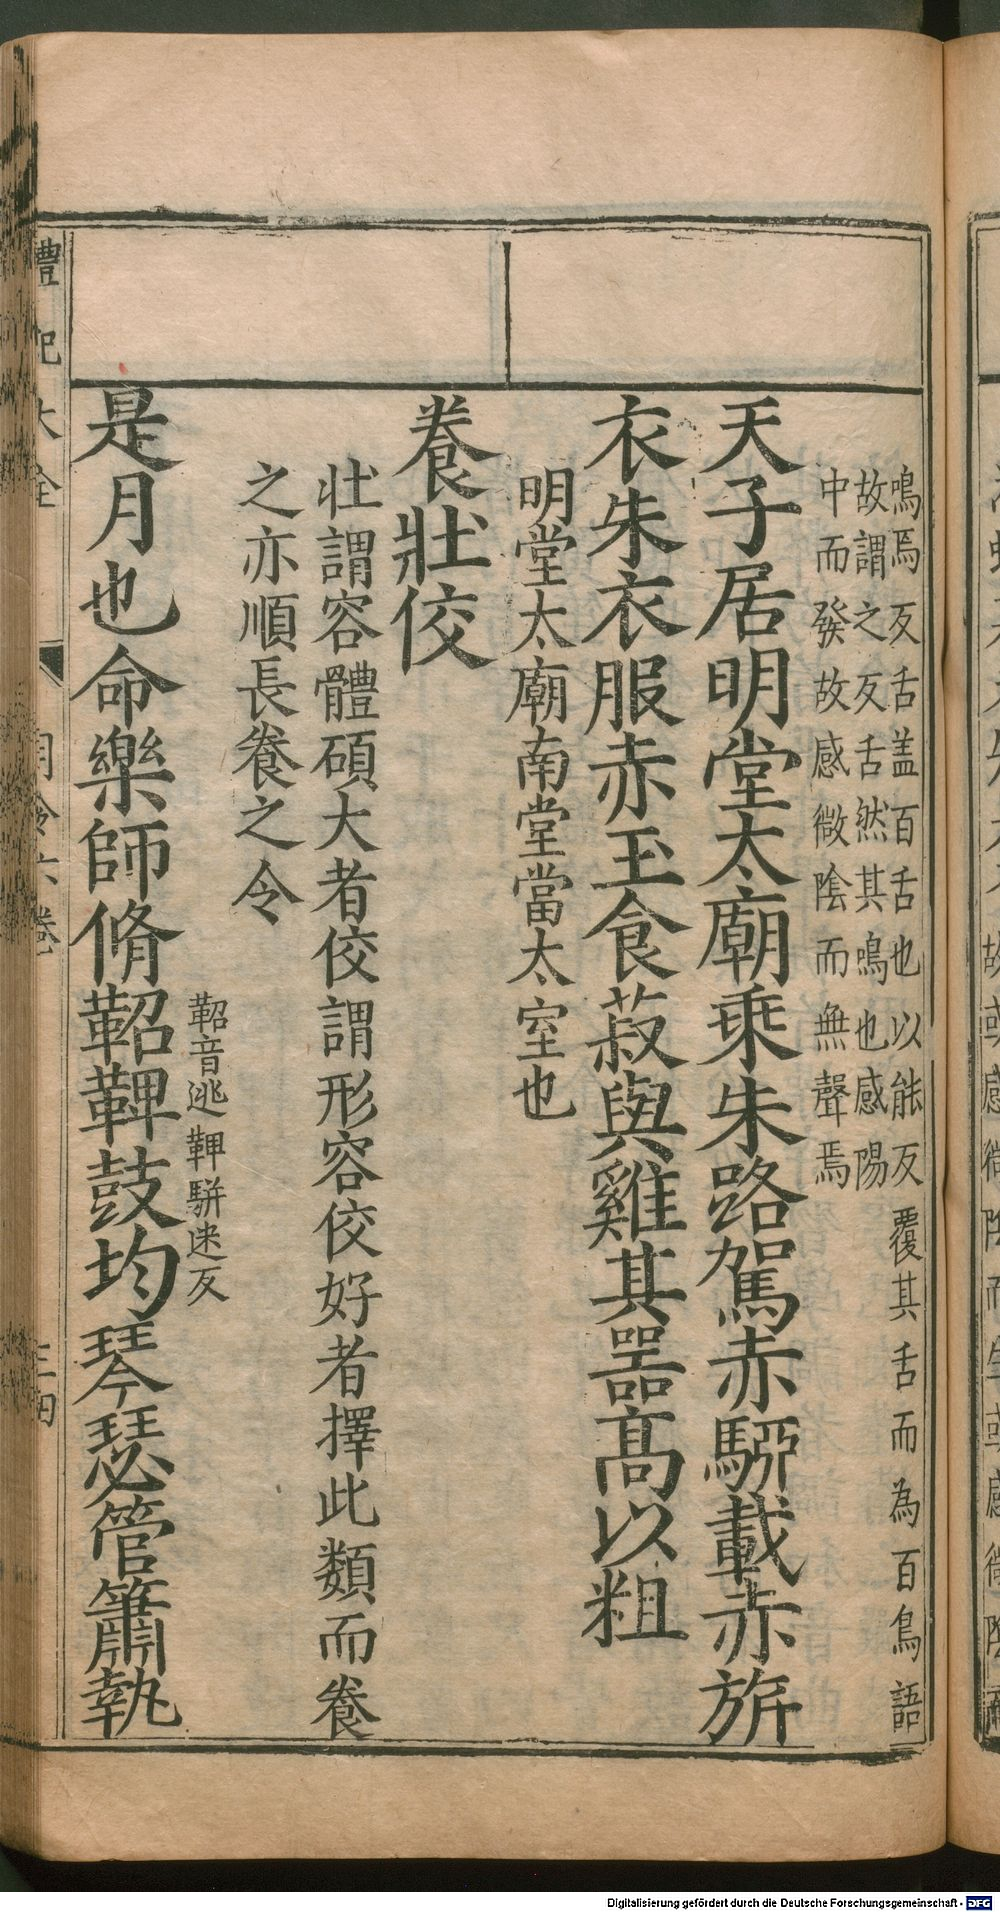 鳴焉反舌盖百舌也以能反覆其舌而為百鳥語
故謂之反舌然其鳴也感陽
中而發故感微陰而無聲焉
天子居明堂太廟乘朱路駕赤駵載赤旂
衣朱衣服赤玉食菽與雞其器高以粗
明堂太廟南堂當太室也
養壯佼
壯謂容體碩大者佼謂形容佼好者擇此類而養
之亦順長養之令
鞀音逃 鞞駢迷反
是月也命樂師脩鞀鞞鼓均琴瑟管簫執
禮記大全 月令六卷 三四
Digitalisierung gefördert durch die Deutsche Forschungsgemeinschaft - DFG